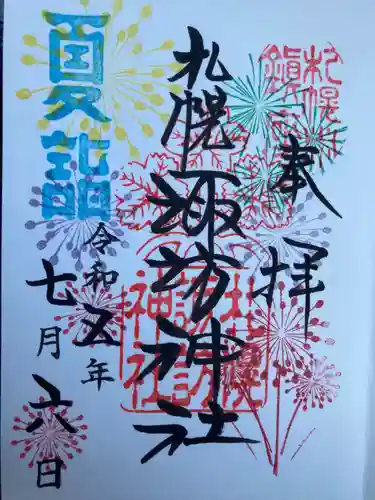 奉拝
札幌諏訪神社
札幌
諏訪
神社
夏詣
令和五年
七月六日